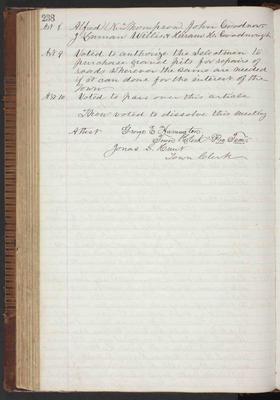 238
Art 8 Alfred N. Thompson John Goodnow
J. Inman Willis Hiram W. Goodnough
Art 9 Voted to authorize the Selectmen to
purchase gravel pits for repairs of
roads whenever the same are needed
if it can done for the interest of the
Town
Art 10 Voted to pass over this article
Then voted to dissolve this meeting
Attest George E Harrington
Town Clerk Pro Tem
Jonas S. Hunt
Town Clerk